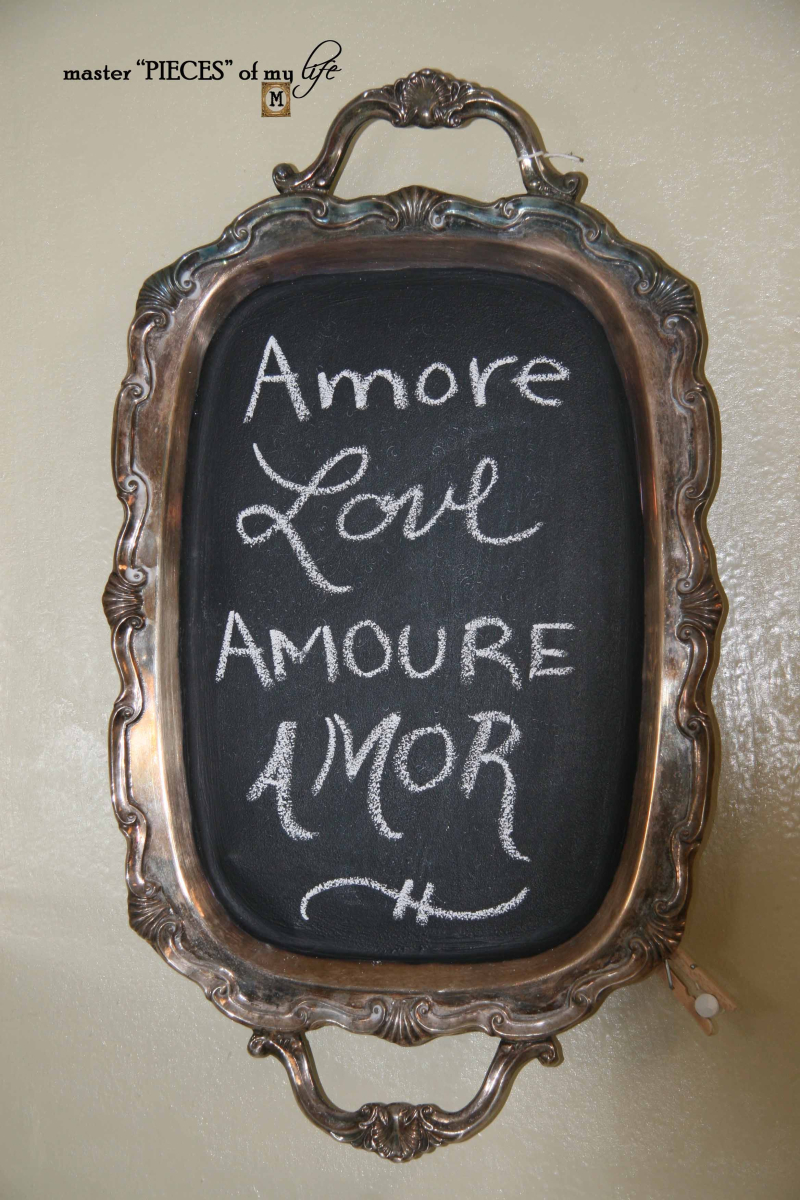 master "PIECES" of my life
M
Amore
Love
AMOURE
AMOR